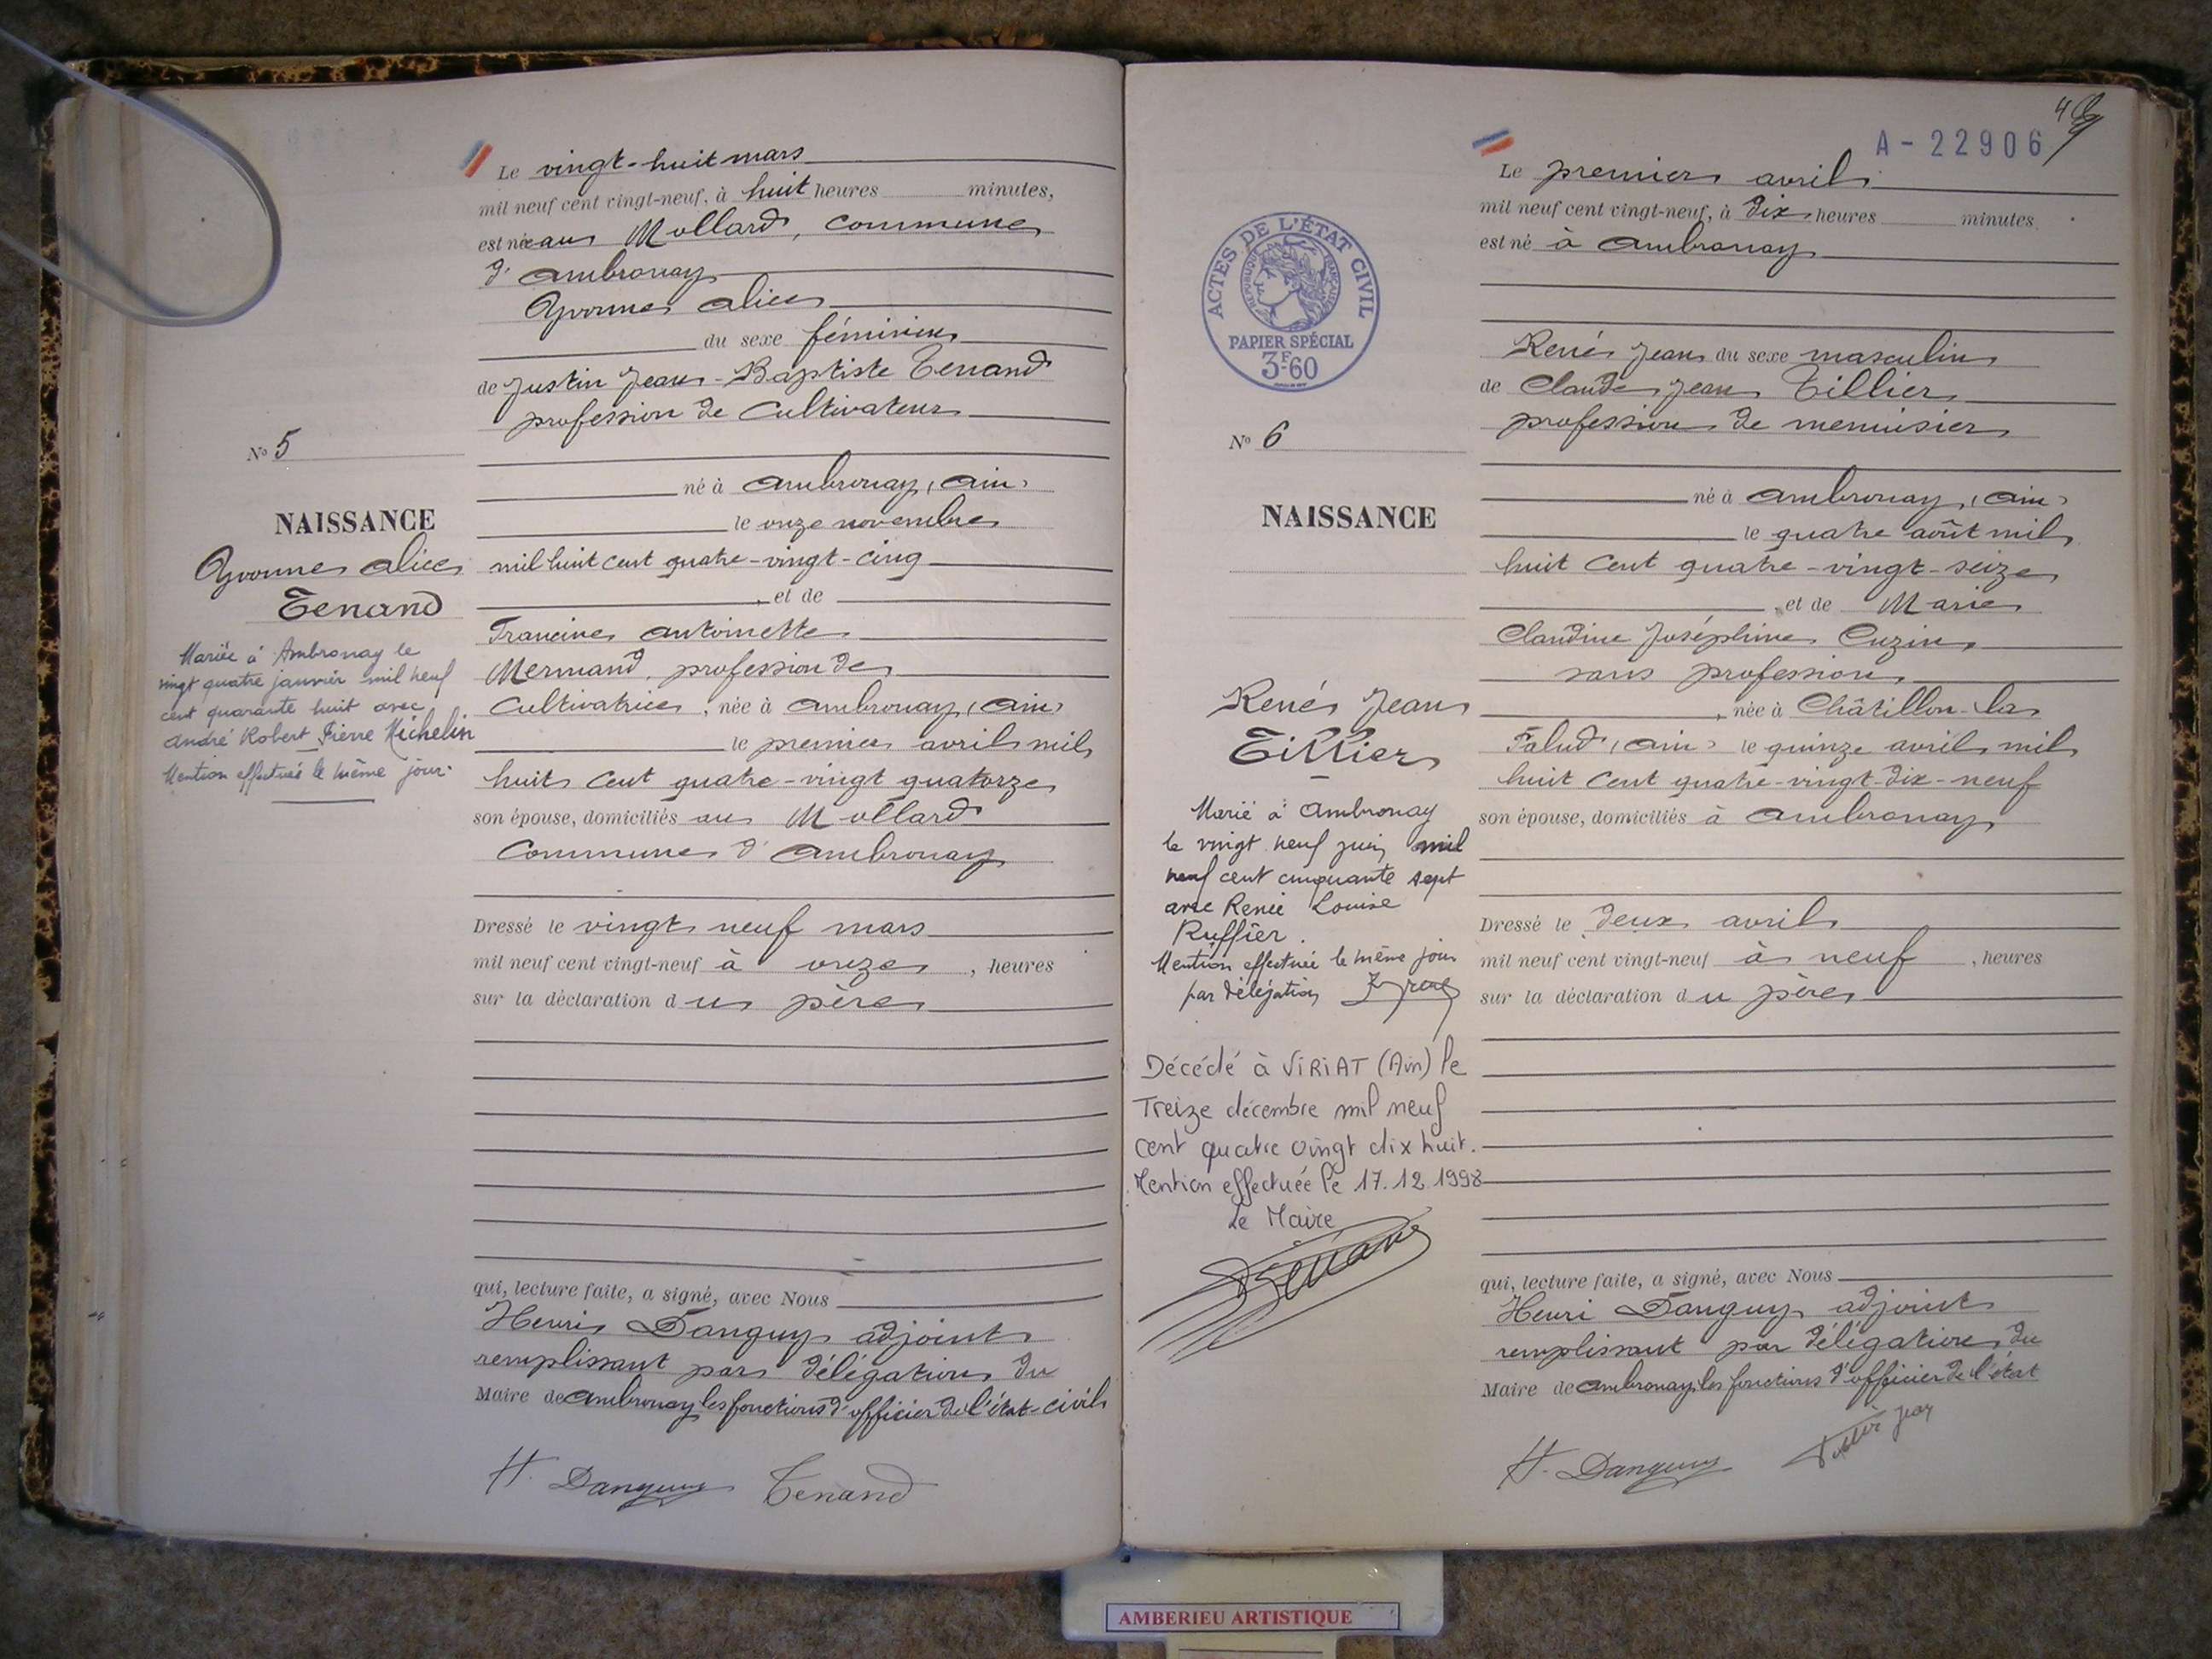 Le vingt-huit mars
mil neuf cent vingt-neuf, à huit heures minutes,
est née au Mollard, commune
d'Ambronay
Yvonne Alice
du sexe féminin
de Justin Jean-Baptiste Tenand
profession de Cultivateur
né à Ambronay (Ain)
le onze novembre
mil huit cent quatre-vingt-cinq
, et de
Francine Antoinette
Mermand, profession de
Cultivatrice, née à Ambronay (Ain)
le premier avril mil
huit cent quatre-vingt quatorze
son épouse, domiciliés au Mollard
Commune d'Ambronay
Dressé le vingt neuf mars
mil neuf cent vingt-neuf à onze, heures
sur la déclaration du père
qui, lecture faite, a signé, avec Nous
Henri Danguy adjoint
remplissant par délégation du
Maire de Ambronay les fonctions d'officier de l'état-civil
H. Danguy Tenand
No 5
NAISSANCE
Yvonne Alice
Tenand
Mariée à Ambronay le
vingt quatre janvier mil neuf
cent quarante huit avec
André Robert Pierre Michelin
Mention effectuée le même jour.
A-22906
Le premier avril
mil neuf cent vingt-neuf, à dix heures minutes
est né à Ambronay
René Jean du sexe masculin
de Claude Jean Tillier
profession de menuisier
né à Ambronay (Ain)
le quatre août mil
huit cent quatre-vingt-seize
, et de Marie
Claudine Joséphine Cuzin,
sans profession,
, née à Châtillon-la
Palud (Ain) le quinze avril mil
huit cent quatre-vingt-dix-neuf
son épouse, domiciliés à Ambronay
Dressé le deux avril
mil neuf cent vingt-neuf à neuf, heures
sur la déclaration du père
qui, lecture faite, a signé, avec Nous
Henri Danguy adjoint
remplissant par délégation du
Maire de Ambronay les fonctions d'officier de l'état
H. Danguy Tillier Jean
ACTES DE L'ÉTAT CIVIL
RÉPUBLIQUE FRANÇAISE
PAPIER SPÉCIAL
3F60
No 6
NAISSANCE
René Jean
Tillier
Marié à Ambronay
le vingt neuf juin mil
neuf cent cinquante sept
avec Renée Louise
Ruffier.
Mention effectuée le même jour
par délégation
Décédé à VIRIAT (Ain) le
Treize décembre mil neuf
cent quatre vingt dix huit.
Mention effectuée le 17.12.1998
Le Maire
AMBERIEU ARTISTIQUE